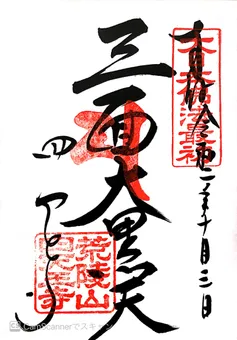 奉拝 令和二年十月三日
三面大黒天
四天王寺
荒陵山
四天王寺
CamScannerでスキャン